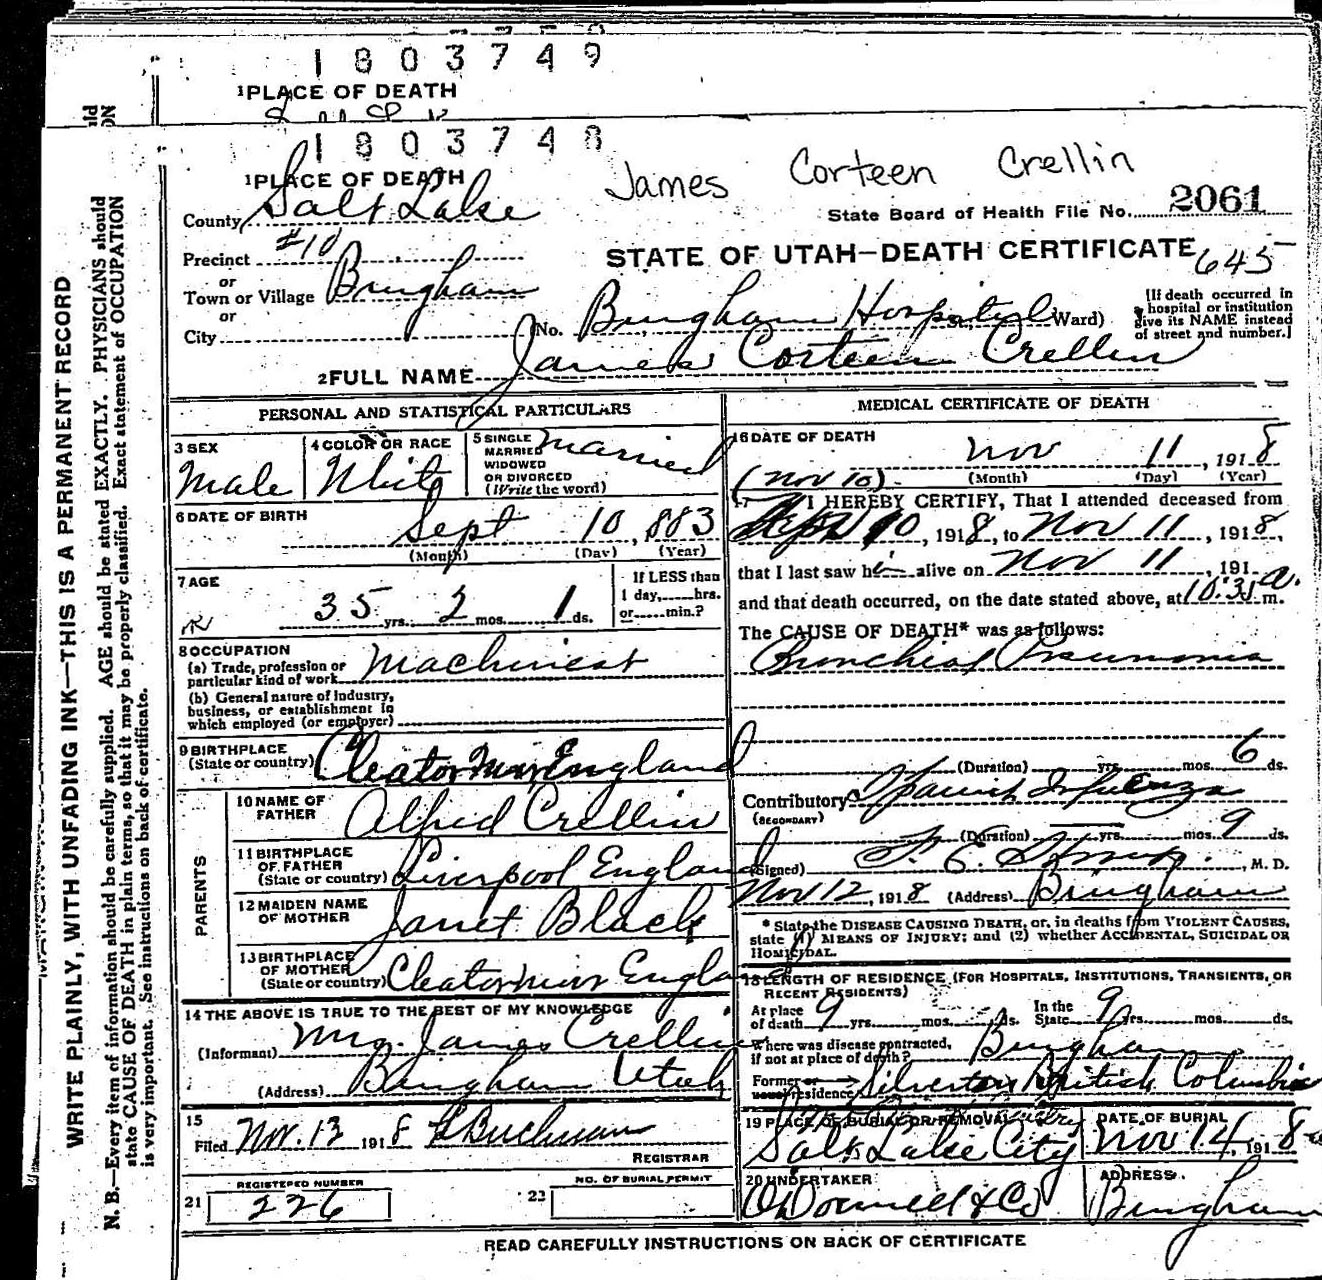 1803749
1 PLACE OF DEATH
1803748
James Corteen Crellin
1 PLACE OF DEATH
County Salt Lake
State Board of Health File No. 2061
Precinct #10
STATE OF UTAH—DEATH CERTIFICATE 645
or
Town or Village Bingham
or
City
(No. Bingham Hospital St., Ward)
[If death occurred in
hospital or institution
give its NAME instead
of street and number.]
2 FULL NAME James Corteen Crellin
PERSONAL AND STATISTICAL PARTICULARS
3 SEX
Male
4 COLOR OR RACE
White
5 SINGLE
MARRIED
WIDOWED
OR DIVORCED
(Write the word)
Married
6 DATE OF BIRTH
Sept 10, 1883
(Month) (Day) (Year)
7 AGE
35 yrs. 2 mos. 1 ds.
If LESS than
1 day, hrs.
or min.?
8 OCCUPATION
(a) Trade, profession or
particular kind of work Machinist
(b) General nature of Industry,
business, or establishment in
which employed (or employer)
9 BIRTHPLACE
(State or country) Cleator Moor England
PARENTS
10 NAME OF
FATHER Alfred Crellin
11 BIRTHPLACE
OF FATHER
(State or country) Liverpool England
12 MAIDEN NAME
OF MOTHER Janet Black
13 BIRTHPLACE
OF MOTHER
(State or country) Cleatormoor England
14 THE ABOVE IS TRUE TO THE BEST OF MY KNOWLEDGE
(Informant) Mrs. James Crellin
(Address) Bingham Utah
15
Filed Nov. 13 1918 Buchman
REGISTRAR
21 REGISTERED NUMBER
226
22 NO. OF BURIAL PERMIT
MEDICAL CERTIFICATE OF DEATH
16 DATE OF DEATH
Nov 11, 1918
(Nov 10). (Month) (Day) (Year)
17 I HEREBY CERTIFY, That I attended deceased from
10, 1918, to Nov 11, 1918,
that I last saw him alive on Nov 11, 191
and that death occurred, on the date stated above, at 10:35 a. m.
The CAUSE OF DEATH* was as follows:
Bronchial Pneumonia
(Duration) yrs. mos. 6 ds.
Contributory Spanish Influenza
(SECONDARY)
(Duration) yrs. mos. 9 ds.
(Signed) F. E. , M. D.
Nov 12, 1918 (Address) Bingham
* State the DISEASE CAUSING DEATH, or, in deaths from VIOLENT CAUSES,
state (1) MEANS OF INJURY; and (2) whether ACCIDENTAL, SUICIDAL OR
HOMICIDAL.
18 LENGTH OF RESIDENCE (FOR HOSPITALS, INSTITUTIONS, TRANSIENTS, OR
RECENT RESIDENTS)
At place
of death 9 yrs. mos. ds.
In the
State 9 yrs. mos. ds.
Where was disease contracted,
if not at place of death? Bingham
Former or
usual residence Silverton British Columbia
19 PLACE OF BURIAL OR REMOVAL
Salt Lake City
DATE OF BURIAL
Nov 14, 1918
20 UNDERTAKER
O'Donnell & Co
ADDRESS
Bingham
READ CAREFULLY INSTRUCTIONS ON BACK OF CERTIFICATE
WRITE PLAINLY, WITH UNFADING INK—THIS IS A PERMANENT RECORD
N. B.—Every item of information should be carefully supplied. AGE should be stated EXACTLY. PHYSICIANS should
state CAUSE OF DEATH in plain terms, so that it may be properly classified. Exact statement of OCCUPATION
is very important. See instructions on back of certificate.